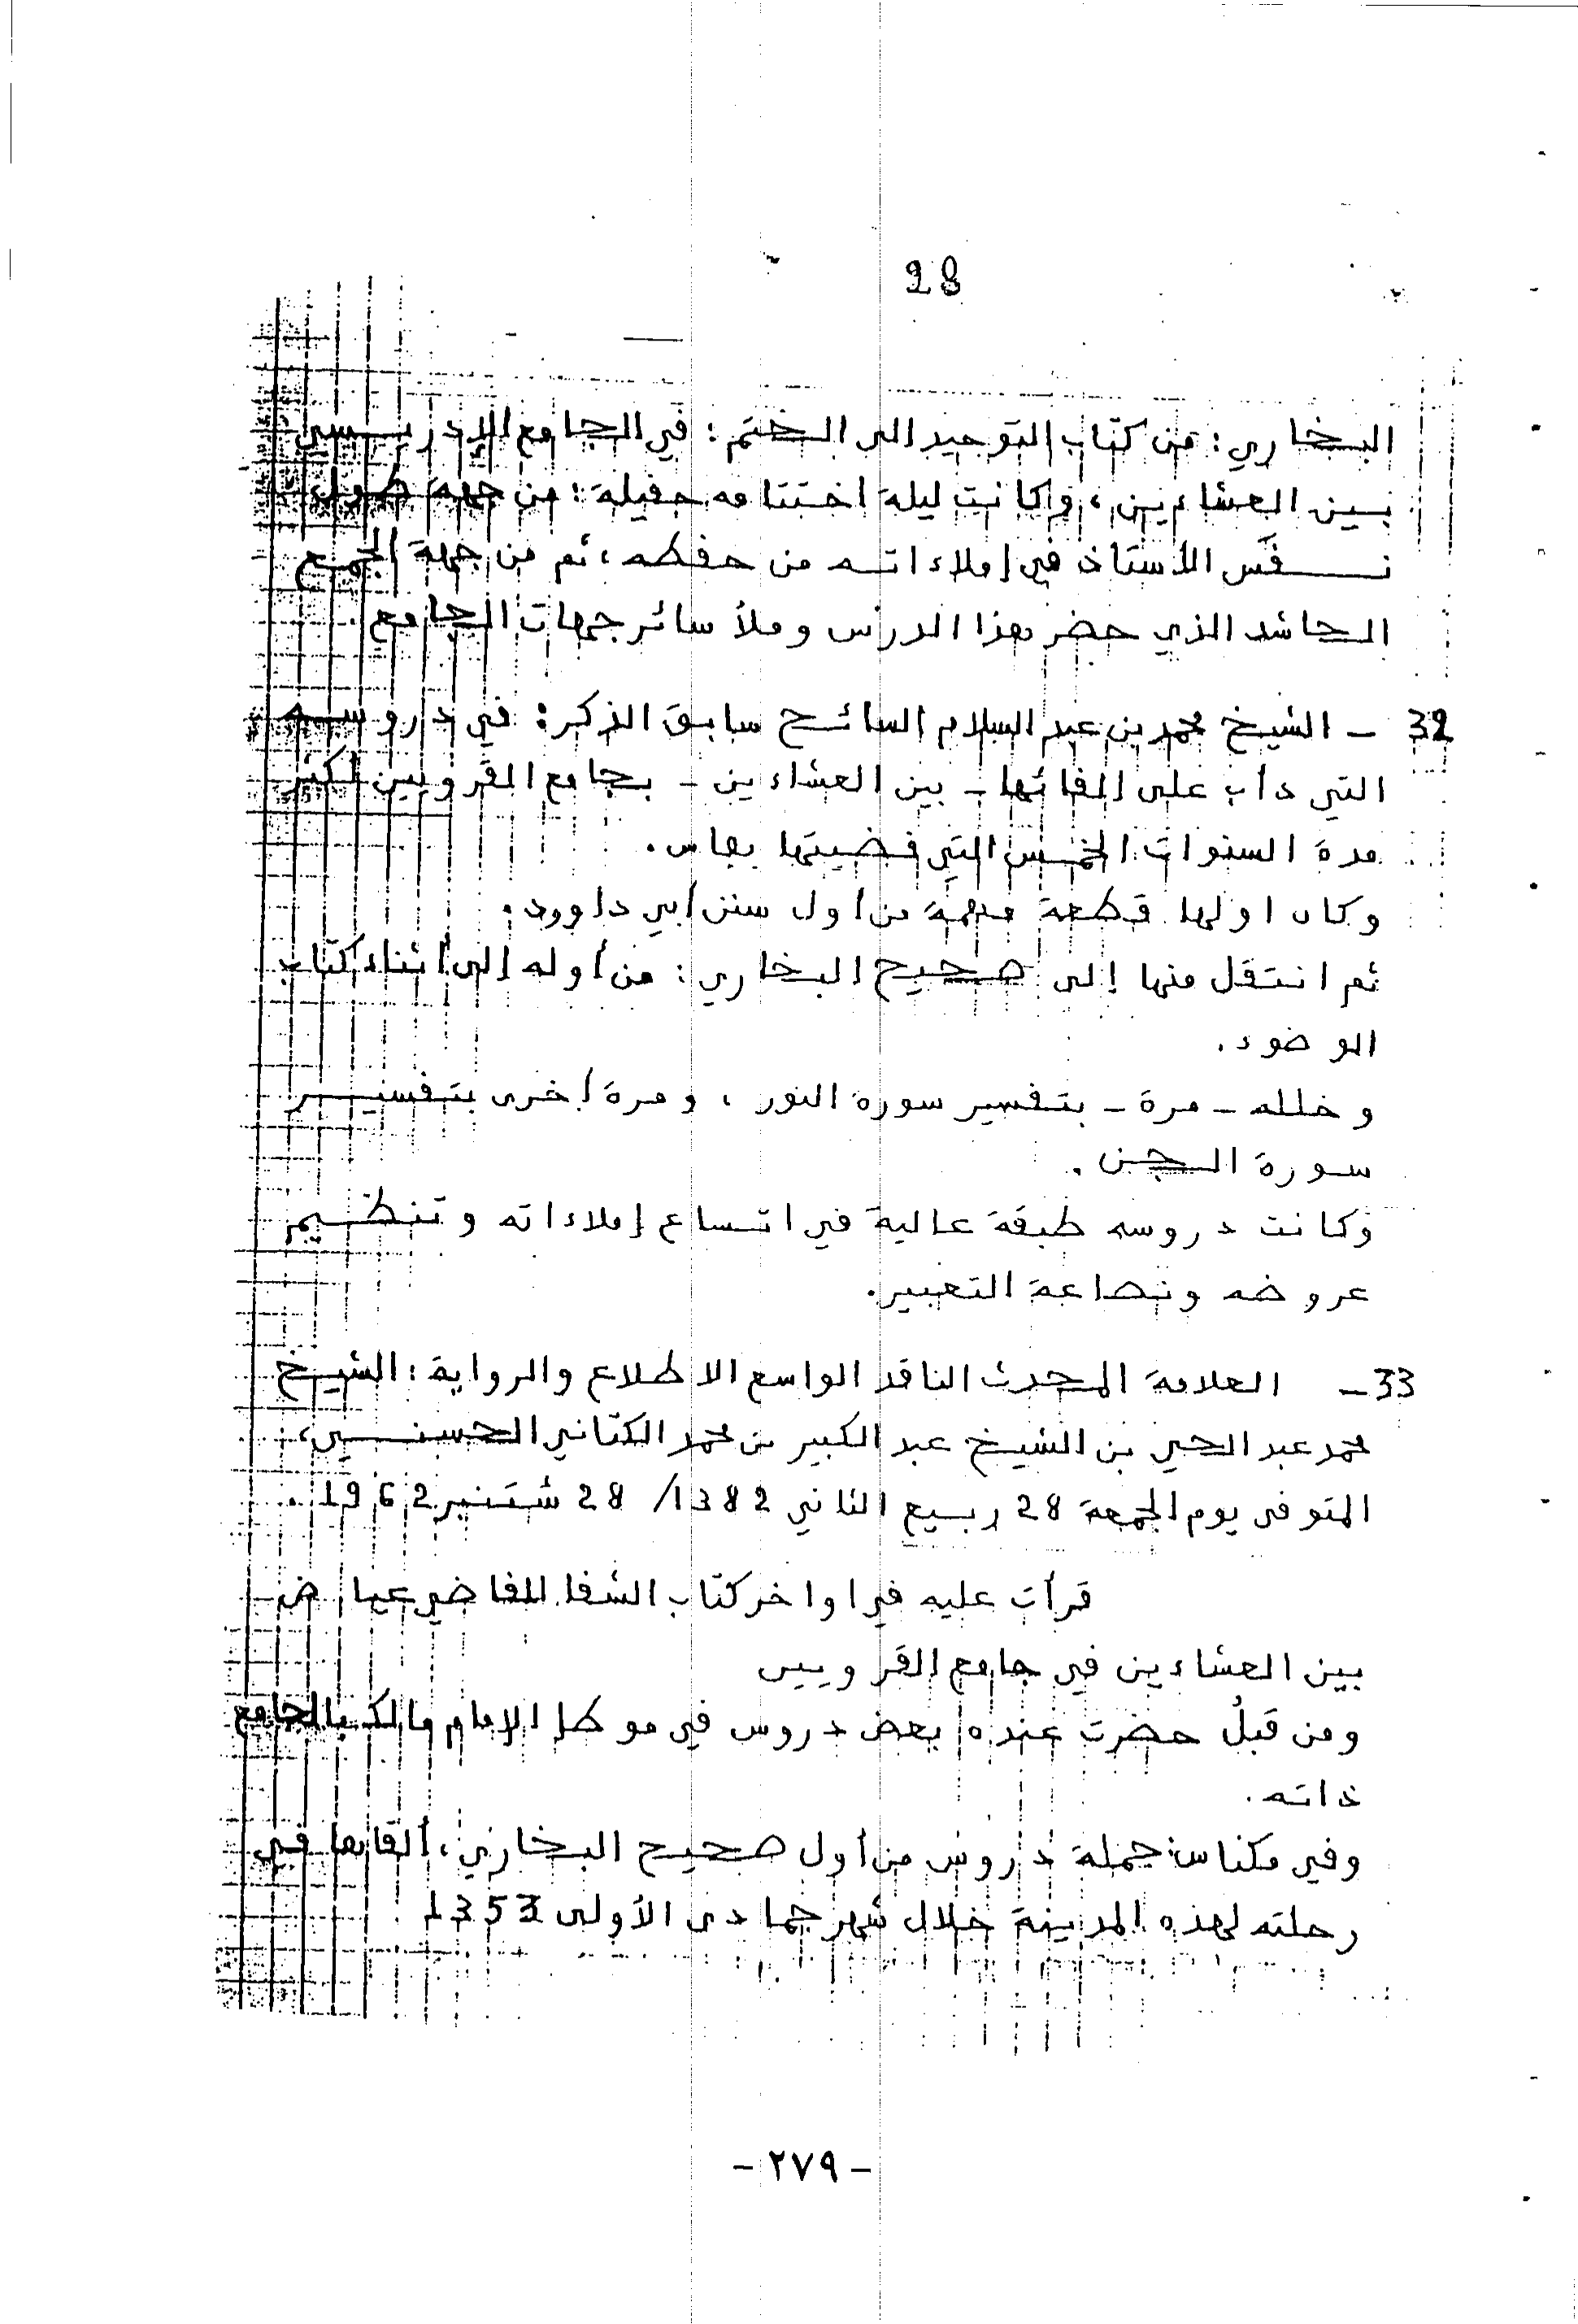 28
البخاري: من كتاب التوحيد الى الختم: في الجامع الإدريسي
بين العشاءين، وكانت ليلة اختتامه حفيلة: من جهة طول
نفَس الأستاذ في إملاءاته من حفظه، ثم من جهة الجمع
الحاشد الذي حضر هذا الدرس وملأ سائر جهات الجامع.
32 - الشيخ محمد بن عبد السلام السائح سابق الذكر: في دروسه
التي دأب على إلقائها - بين العشاءين - بجامع القرويين أكثر
مدة السنوات الخمس التي قضيتها بفاس.
وكان اولها قطعة مهمة من أول سنن أبي داوود.
ثم انتقل منها إلى صحيح البخاري: من أوله إلى أثناء كتاب
الوضوء.
وخلله - مرة - بتفسير سورة النور، ومرة أخرى بتفسير
سورة الجن.
وكانت دروسه طبقة عالية في اتساع إملاءاته وتنظيم
عروضه ونصاعة التعبير.
33 - العلامة المحدث الناقد الواسع الاطلاع والرواية: الشيخ
محمد عبد الحي بن الشيخ عبد الكبير بن محمد الكتاني الحسني،
المتوفى يوم الجمعة 28 ربيع الثاني 1382/ 28 شتنبر 1962.
قرأت عليه في اواخر كتاب الشفا للقاضي عياض
بين العشاءين في جامع القرويين
ومن قبلُ حضرت عنده بعض دروس في موطإ الإمام مالك بالجامع
ذاته.
وفي مكناس: جملة دروس من أول صحيح البخاري، ألقاها في
رحلته لهذه المدينة خلال شهر جمادى الأولى 1353
- ٢٧٩ -